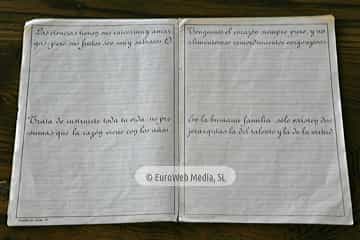 Las ciencias tienen sus raices muy amar
gas; pero sus frutos son muy sabrosos. O
Trata de instruirte toda tu vida: no pre
sumas que la razon viene con los años.
Tengamos el corazón siempre puro, y no
alimentemos remordimientos vergonzosos
En la humana familia, sólo existen dos
jerarquías la del talento y la de la virtud
© EuroWeb Media, SL